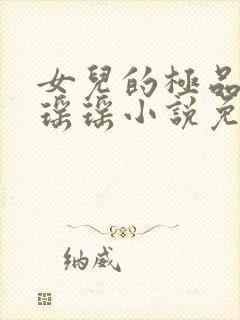 女兒的極品
瑤瑤小說免
纳威